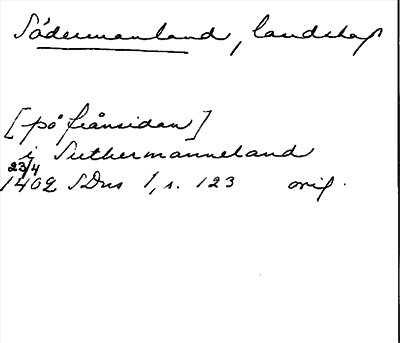 Södermanland, landskap
[på frånsidan]
j Suthermanneland
23/4
1402 SDns 1, s. 123 orig.